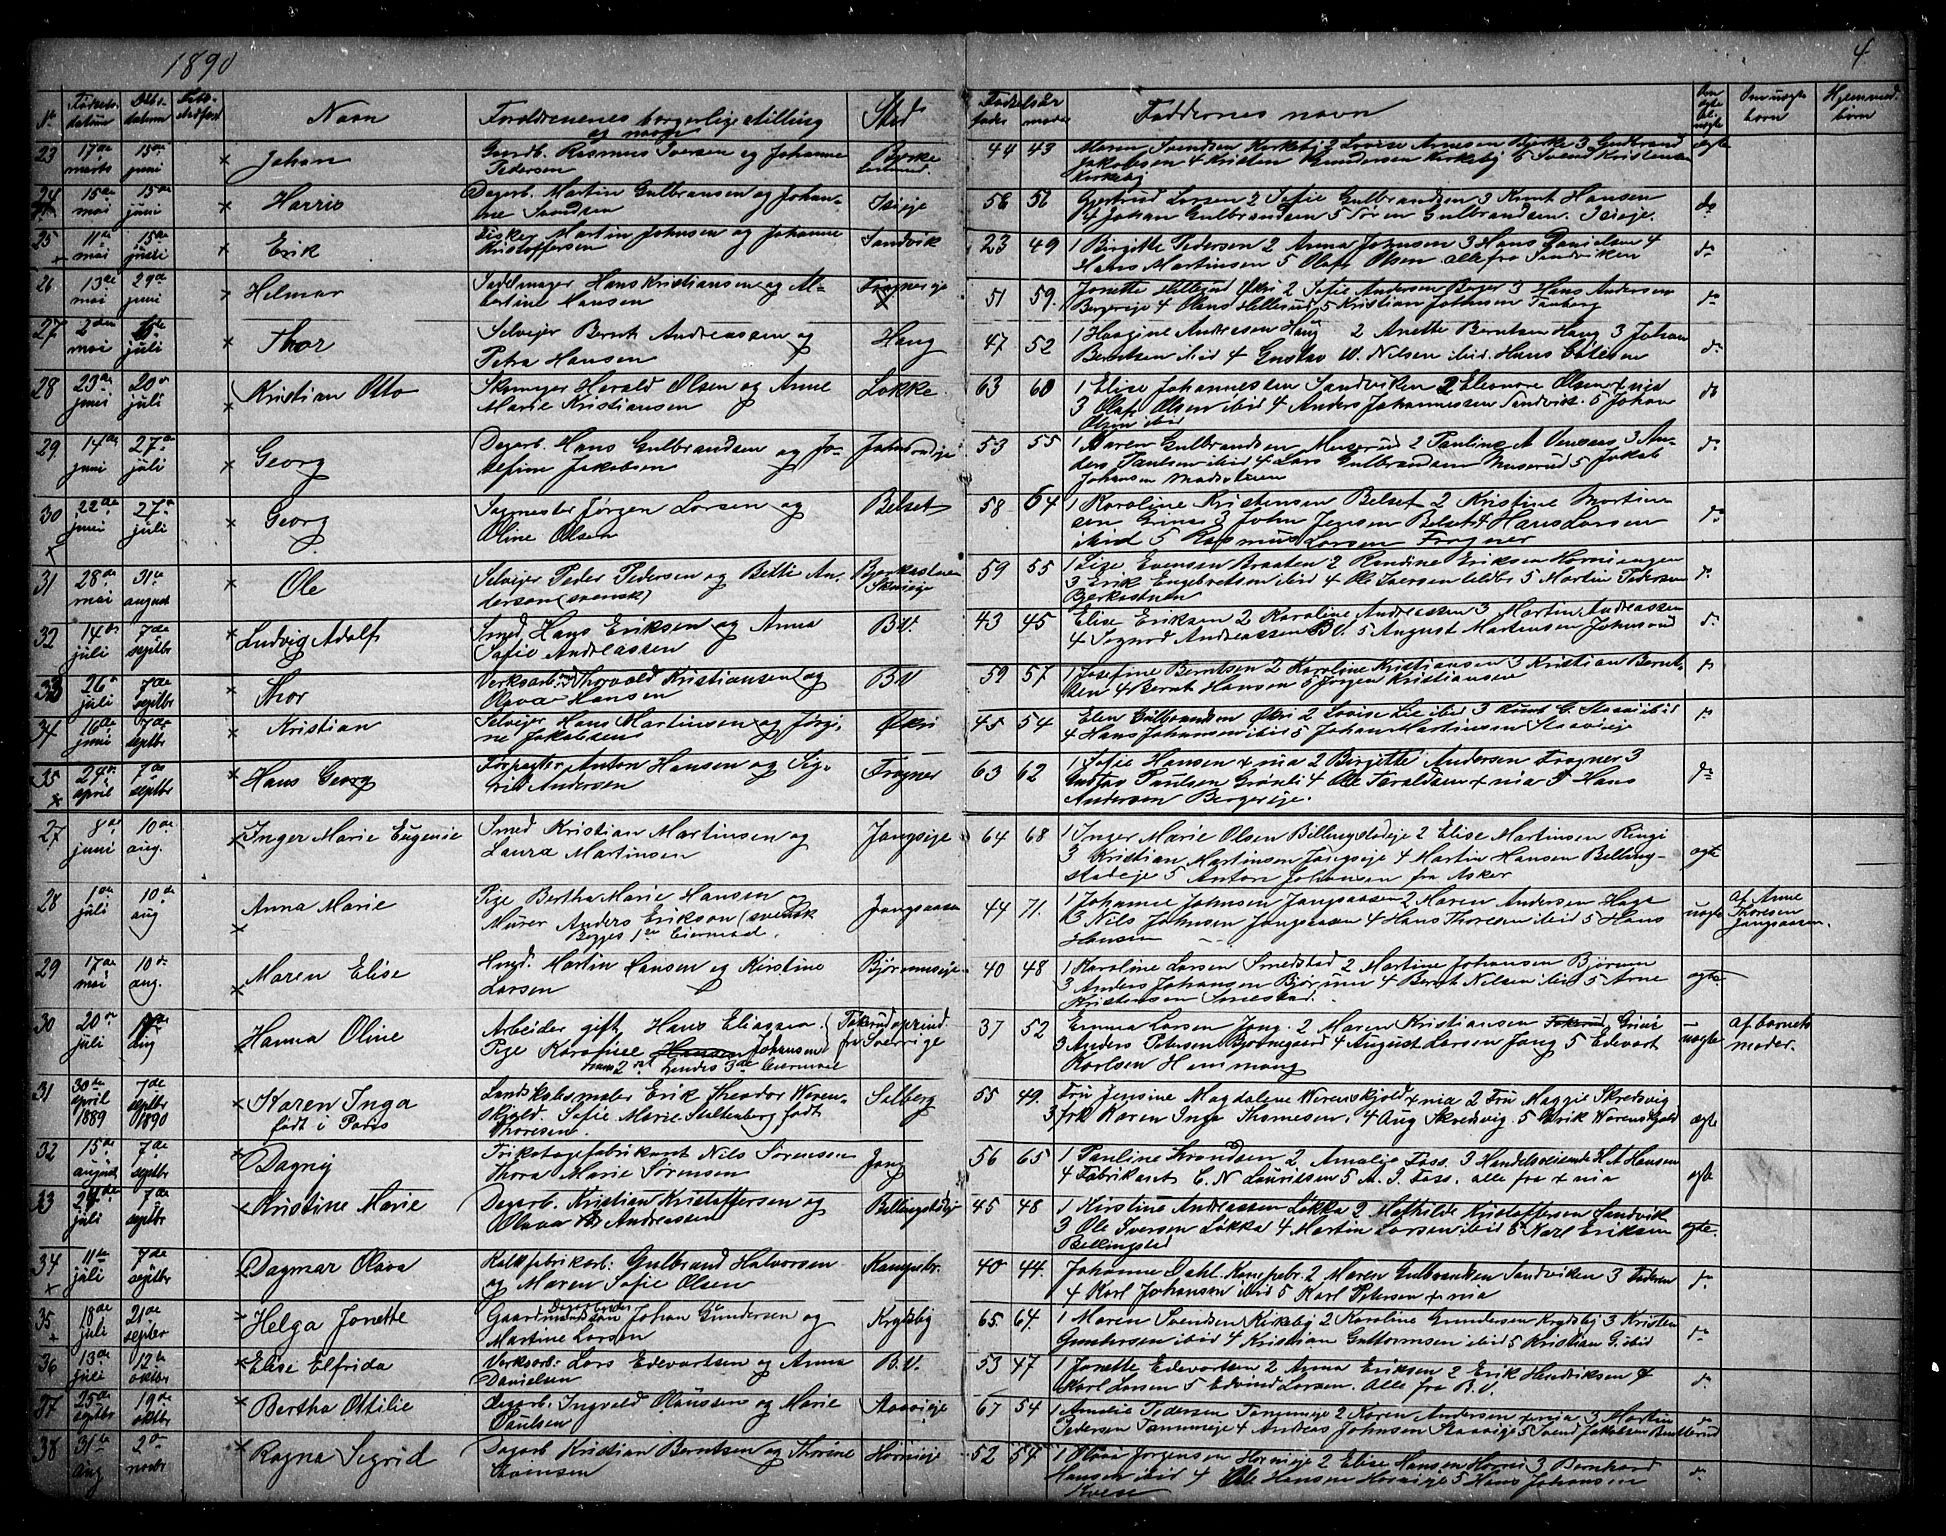 1890
4
No Fødsels-datum Daabs-datum Navn Forældrenenes borgerlige stilling og navn Sted Fødselsår fader moder Faddernes navn Om ægte el. uægte Om uægte barn Hjemmed. barn
23 17de marts 15de juni × Johan Gaardb. Rasmus Iversen og Johanne Pedersen Bjerke 44 43 Maren Svendsen Kirkeby 2 Lovise Arnesen Bjerke 3 Gudbrand
Jakobsen 4 Kristen Gundersen Kirkeby 5 Svend Kristensen
Kirkeby ægte
24 15de mai 15de juni × Harris Dagarb. Martin Gulbransen og Johanne 56 56 Gjertrud Larsen 2 Sofie Gulbrandsen 3 Knut Hansen
4 Johan Gulbrandsen 5 Søren Gulbrandsen. do
25 11te mai 15de juni × Erik Fisker Martin Johnsen og Johanne Kristoffersen Sandvik 23 49 1 Birgitte Pedersen 2 Anna Johnsen 3 Hans Danielsen 4
Hans Martinsen 5 Olaf Olsen alle fra Sandviken do
26 13de mai 29de juni Helmar Sadelmager Hans Kristiansen og Albertine Hansen Frognereje 51 59. Jonette Hellerud Økri 2 Sofie Andersen Berger 3 Hans Andersen
Bergereje 4 Olaus Hellerud 5 Kristian Johansen do
27 2den mai juli × Thor Selvejer Bernt Andreassen og Petra Hansen Haug 47 52 1 Haagine Andresen Haug 2 Anette Berntsen Haug 3 Johan
Berntsen ibid 4 Gustav W. Nilsen ibid. Hans do
28 23de juni 20de juli × Kristian Otto Skomager Harald Olsen og Anne Marie Kristiansen Løkke 63 60 1 Elise Johannessen Sandviken 2 Eleonore Olsen × nia
3 Olaf Olsen ibid 4 Anders Johannessen Sandvik. 5 Johan
Olsen ibid do
29 14de juni 27de juli × Georg Dagarb. Hans Gulbrandsen og Josefine Jakobsen Johnsrudeje 53 55 1 Karen Gulbrandsen Muserud 2 Pauline A 3 Anders
Paulsen ibid 4 Lars Gulbrandsen Muserud 5 Jakob
Johansen do
30 22de juni 27de juli × Georg Sagmester Jørgen Larsen og Oline Olsen Belset 58 64 1 Karoline Kristensen Belset 2 Kristine Martinsen
3 John Jensen Belset 4 Hans Larsen
ibid 5 Rasmus Larsen Frogner do
31 28de mai 31te august × Ole Selvejer Peder Pedersen og Bette Anderson (svensk) 59 55 1 Lise Evensen Braaten 2 Randine Eriksen Horniengen
3 Erik Engebretsen ibid 4 Ole Iversen 5 Martin Pedersen do
32 14de juli 7de septbr × Ludvig Adolf Smed Hans Eriksen og Anna Sofie Andreassen B.V. 43 45 Elise Eriksen 2 Karoline Andreassen 3 Martin Andreassen
4 Sigurd Andreassen B.V. 5 August Martinsen Johnsrud do
33 26de juli 7de septbr × Thor Verksarb. Thorvald Kristiansen og Olava Hansen B.V 59 57 1 Josefine Berntsen 2 Karoline Kristiansen 3 Kristian Berntsen
4 Bernt Hansen 5 Jørgen Kristiansen do
34 16de juni 7de septbr × Kristian Selvejer Hans Martinsen og Jørgine Jakobsen Økri 45 54 Elen Gulbrandsen Økri 2 Lovise Lie ibid 3 Knut G. ibid
4 Hans Johansen ibid 5 Johan Martinsen Staavieje do
35 24de april 7de septbr × Hans Georg Forpagter Anton Hansen og Sigrid Andersen Frogner 63 62 1 Sofie Hansen × nia 2 Birgitte Andersen Frogner 3
Gustav Paulsen Grønli 4 Ole Taraldsen × nia 5 Hans
Andersen Bergereje. do
27 8de juni 10de aug. × Inger Marie Eugenie Smed Kristian Martinsen og Laura Martinsen Jongseje 64 68 1 Inger Marie Olsen Billingstadeje 2 Elise Martinsen Ringi
3 Kristian Martinsen Jongseje 4 Martin Hansen Billing-
stadeje 5 Anton Johansen fra Asker ægte
28 1de juli 10de aug × Anna Marie Pige Bertha Marie Hansen og Murer Anders Erikson (svensk Begges 1ste Leiermaal. Jongsaasen 44 71 1 Johanne Johnsen Jongsaasen 2 Maren Andersen Haga
3 Nils Johnsen Jongsaasen 4 Hans Thoresen ibid 5 Hans
Hansen uægte af Anne Thoresen Jongsaasen.
29 17de mai 10de aug. × Maren Elise Martin Hansen og Kirstine Larsen Bjørumseje 40 48 1 Karoline Larsen Smedstad 2 Martine Johansen Bjørum
3 Anders Johansen Bjørum 4 Bernt Nilsen ibid 5 Arne
Kristensen Smestad. ægte
30 20de juli aug × Hanna Oline Arbeider gift Hans Eliassen Pige Karoline Johansen hans 2det hendes 3de Leiermaal Sverrige 37 52 Emma Larsen Jong. 2 Maren Kristiansen
3 Anders Petersen Bjørnegaard 4 August Larsen Jong 5 Edevart
Karlsen Hemmang uægte af barnets moder.
31 30de april 1889 7de septbr 1890 × Karen Inga født i Paris Landskabsmaler Erik Theodor Werenskjold. Sofie Marie Stoltenberg født Thoresen. Solberg 55 49. Fru Jensine Magdalene Werenskjold × nia 2 Fru Maggie Skredsvig
3 frk Karen Inga Thomesen. 4 Aug Skredsvig. 5 Werenskjold ægte
32 15de august 7de septbr × Dagny Trikotagefabrikant Nils Sørensen Thora Marie Sørensen Jong 56 65 1 Pauline Svendsen 2 Amalie Foss. 3 Handelsreisende H A Hansen
4 Fabrikant C. N Lauritsen 5 A. J. Foss. alle fra × nia ægte
33 juli 7de septbr Kristine Marie Dagarb. Kristian Kristoffersen og Olava Andreassen Billingstadeje 45 48 1 Kirstine Andreassen Løkka 2 Mathilde Kristoffersen Sandvik
3 Ole Iversen Løkka 4 Martin Larsen ibid 5 Karl Eriksen
Billingstad ægte
34 11te juli 7de septbr Dagmar Olava Kalkfabrikarb. Gulbrand Halvorsen og Maren Sofie Olsen Kampebr. 40 44. Johanne Dahl Kampebr. 2 Maren Gulbrandsen Sandviken 3 Pedersen
4 Karl Johansen ibid 5 Karl Petersen × nia do
35 18de juli 21de septbr × Helga Jonette Johan Gundersen og Martine Larsen Krydsby 65. 64. 1 Maren Svendsen Kirkeby 2 Karoline Gundersen Krydsby 3 Kristen
Gundersen ibid 4 Kristian Guttormsen ibid 5 Kristian G. ibid do
36 13de juli 12te oktbr × Elise Elfrida Verksarb. Lars Edevartsen og Anna Danielsen B.V. 53 47 1 Jonette Edevartsen 2 Anna Eriksen 2 Erik Hendriksen 4
Karl Larsen 5 Edvind Larsen. Alle fra B.V. do
37 25de septbr 19de oktbr × Bertha Ottilie Dagarb. Ingvald Olaussen og Marie Paulsen Staavieje 67 54 1 Amalie Pedersen Tanumeje 2 Karen Andersen × nia 3 Martin
Pedersen Tanumseje 4 Andreas Johnsen Staavieje 5 Svend Jakobsen do
38 31te Aug 2de novbr × Ragna Sigrid Dagarb Kristian Berntsen og Thorine Evensen Hornieje 52 54 1 Olava Jørgensen Hornieje 2 Elise Hansen Horni 3 Bernhard
Hansen ibid 4 Ole Hansen Hornieje 5 Hans Johansen do